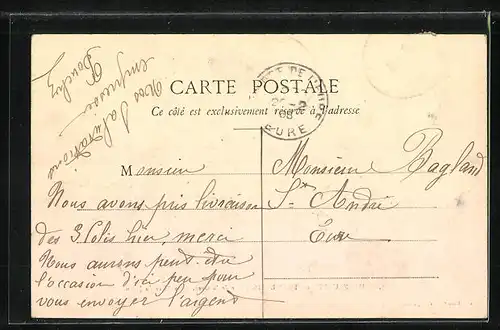 CARTE POSTALE
Ce côté est exclusivement réservé à l'adresse
EURE
Monsieur
Nous avons pris livraison
des 3 Colis hier, merci
Nous aurons peut-être
l'occasion d'ici peu pour
vous envoyer l'argent
Nos Salutations
empressées
Monsieur Ragland
St André
Eure